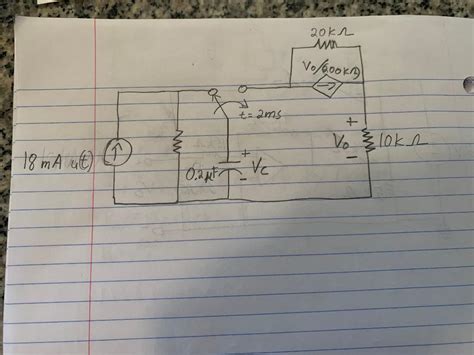 20kΩ
Vo/(200kΩ)
t=2ms
18mA u(t)
0.2μF
+
Vc
-
+
Vo
-
10kΩ